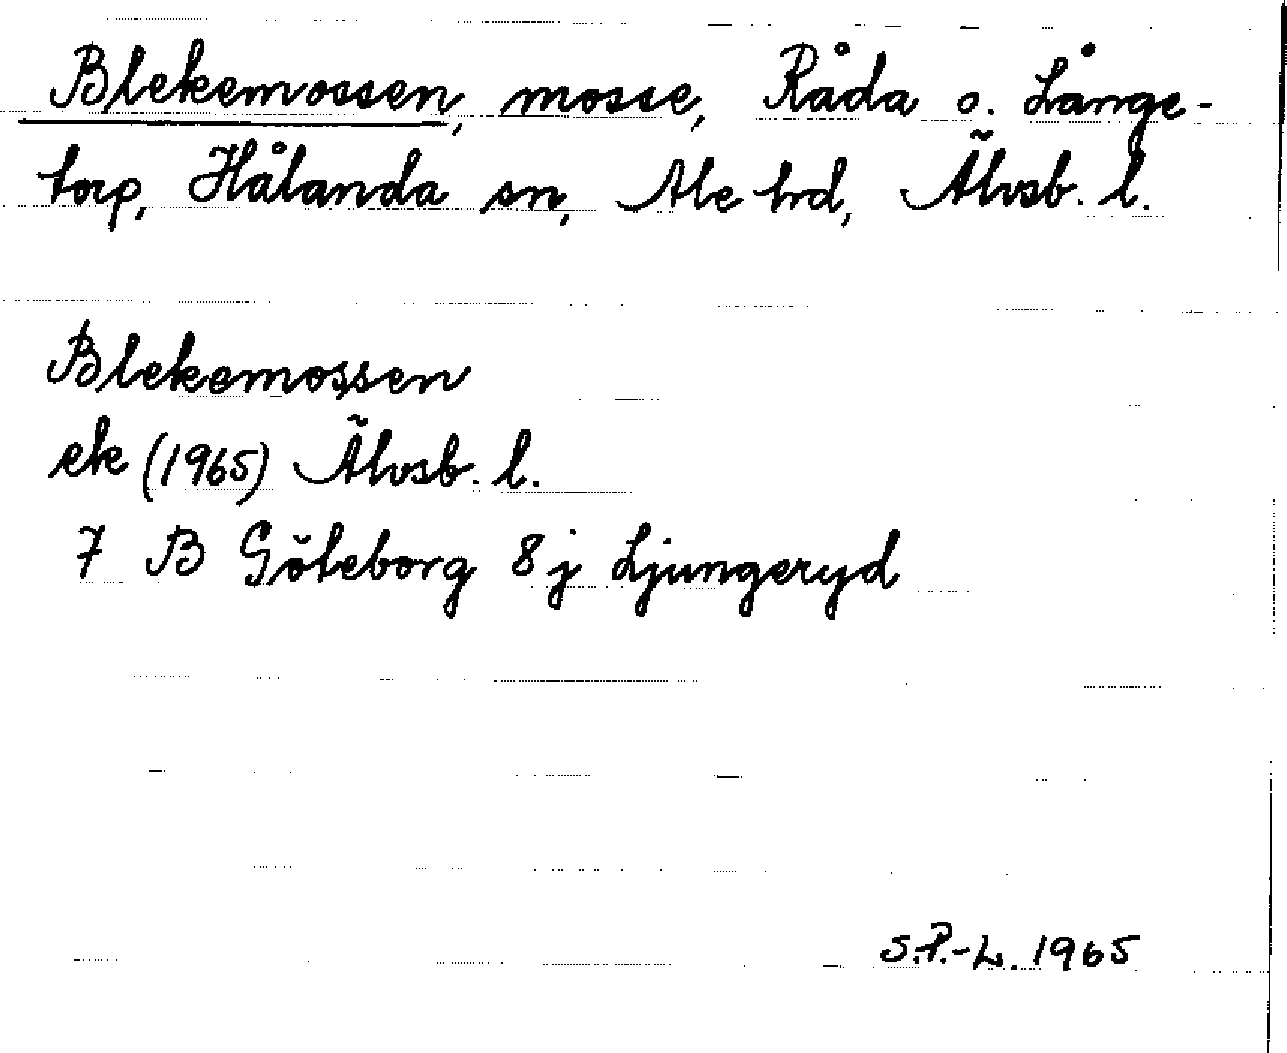 Blekemossen, mosse, Råda o. Långe-
torp, Hålanda sn, Ale hrd, Älvsb. l.
Blekemossen
ek (1965) Älvsb. l.
7 B Göteborg 8j Ljungeryd
S.P.-L. 1965